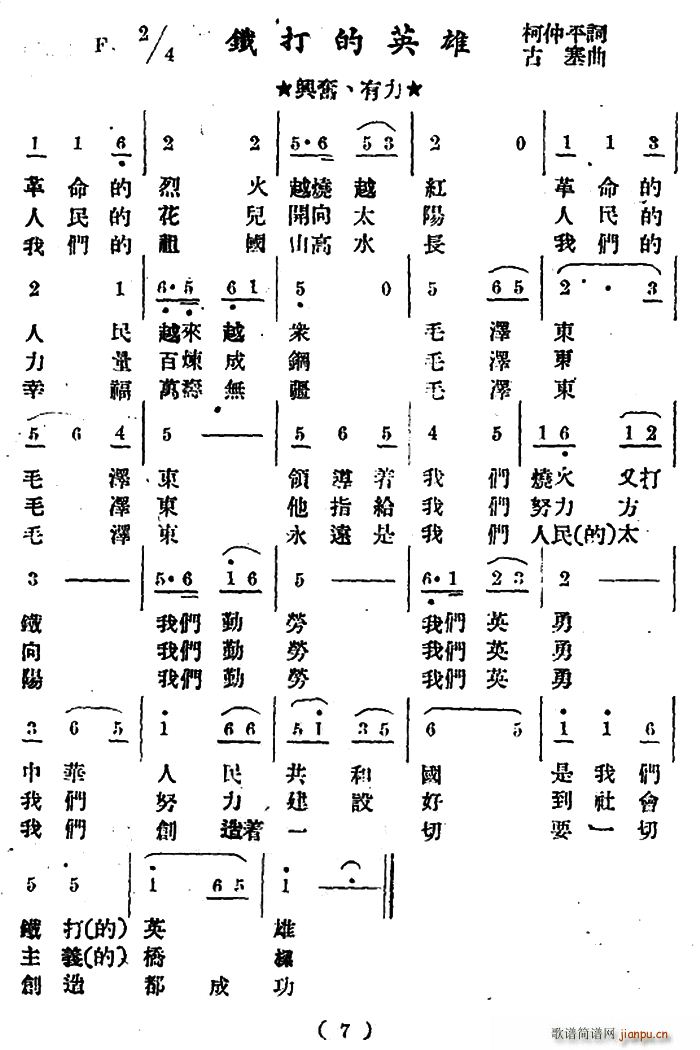 F. 2/4 鐵打的英雄 柯仲平詞
古塞曲
★興奮、有力★
1 1 6 | 2 2 | 5·6 5 3 | 2 0 | 1 1 3
革命的 烈火 越燒越 紅 革命的
人民的 花兒 開向太 陽 人民的
我們的 祖國 山高水 長 我們的
2 1 | 6·5 6 1 | 5 0 | 5 6 5 | 2· 3
人民 越來越 衆 毛澤 東
力量 百煉成 鋼 毛澤 東
幸福 萬壽無 疆 毛澤 東
5 6 4 | 5 — | 5 6 5 | 4 5 | 1 6· 1 2
毛澤 東 領導着 我們 燒火又打
毛澤 東 他指給 我們 努力方
毛澤 東 永遠是 我們 人民(的)太
3 — | 5·6 1 6 | 5 — | 6·1 2 3 | 2 —
鐵 我們勤 勞 我們英 勇
向 我們勤 勞 我們英 勇
陽 我們勤 勞 我們英 勇
3 6 5 | 1 6 6 | 5 1 3 5 | 6 5 | 1 1 6
中華 人民 共和 國 是我們
我們 努力 建設 好 到社會
我們 創造着 一 切 要一切
5 5 | 1 6 5 | 1 — ‖
鐵打(的) 英 雄
主義(的) 橋 樑
創造 都成 功
( 7 )
歌谱简谱网
jianpu.cn